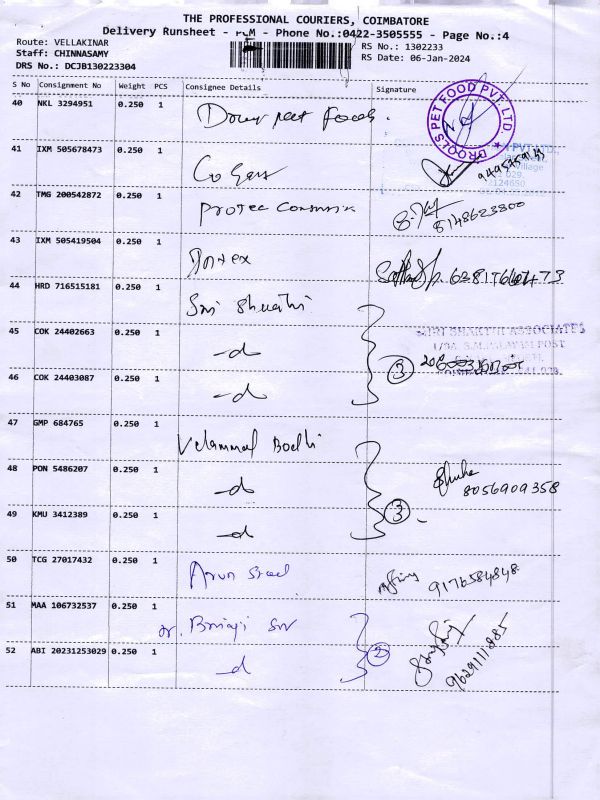 THE PROFESSIONAL COURIERS, COIMBATORE
Delivery Runsheet - - Phone No.:0422-3505555 - Page No.:4
Route: VELLAKINAR
RS No.: 1302233
Staff: CHINNASAMY
RS Date: 06-Jan-2024
DRS No.: DCJB130223304
S No Consignment No Weight PCS Consignee Details Signature
40 NKL 3294951 0.250 1 Foods.
DROOLS PET FOOD PVT. LTD.
41 IXM 505678473 0.250 1
PVT LTD.,
Village
42 TMG 200542872 0.250 1 Protec
8148623800
43 IXM 505419504 0.250 1
44 HRD 716515181 0.250 1 Sri Shakthi
SHAKTHI ASSOCIATES
45 COK 24402663 0.250 1 -d 3
46 COK 24403087 0.250 1 -d
47 GMP 684765 0.250 1 Velammal Bodhi
48 PON 5486207 0.250 1 -d
8056909358
49 KMU 3412389 0.250 1 -d 3
50 TCG 27017432 0.250 1 Arun Steel 9176584848
51 MAA 106732537 0.250 1 Dr.
52 ABI 20231253029 0.250 1 -d 2
9629111885